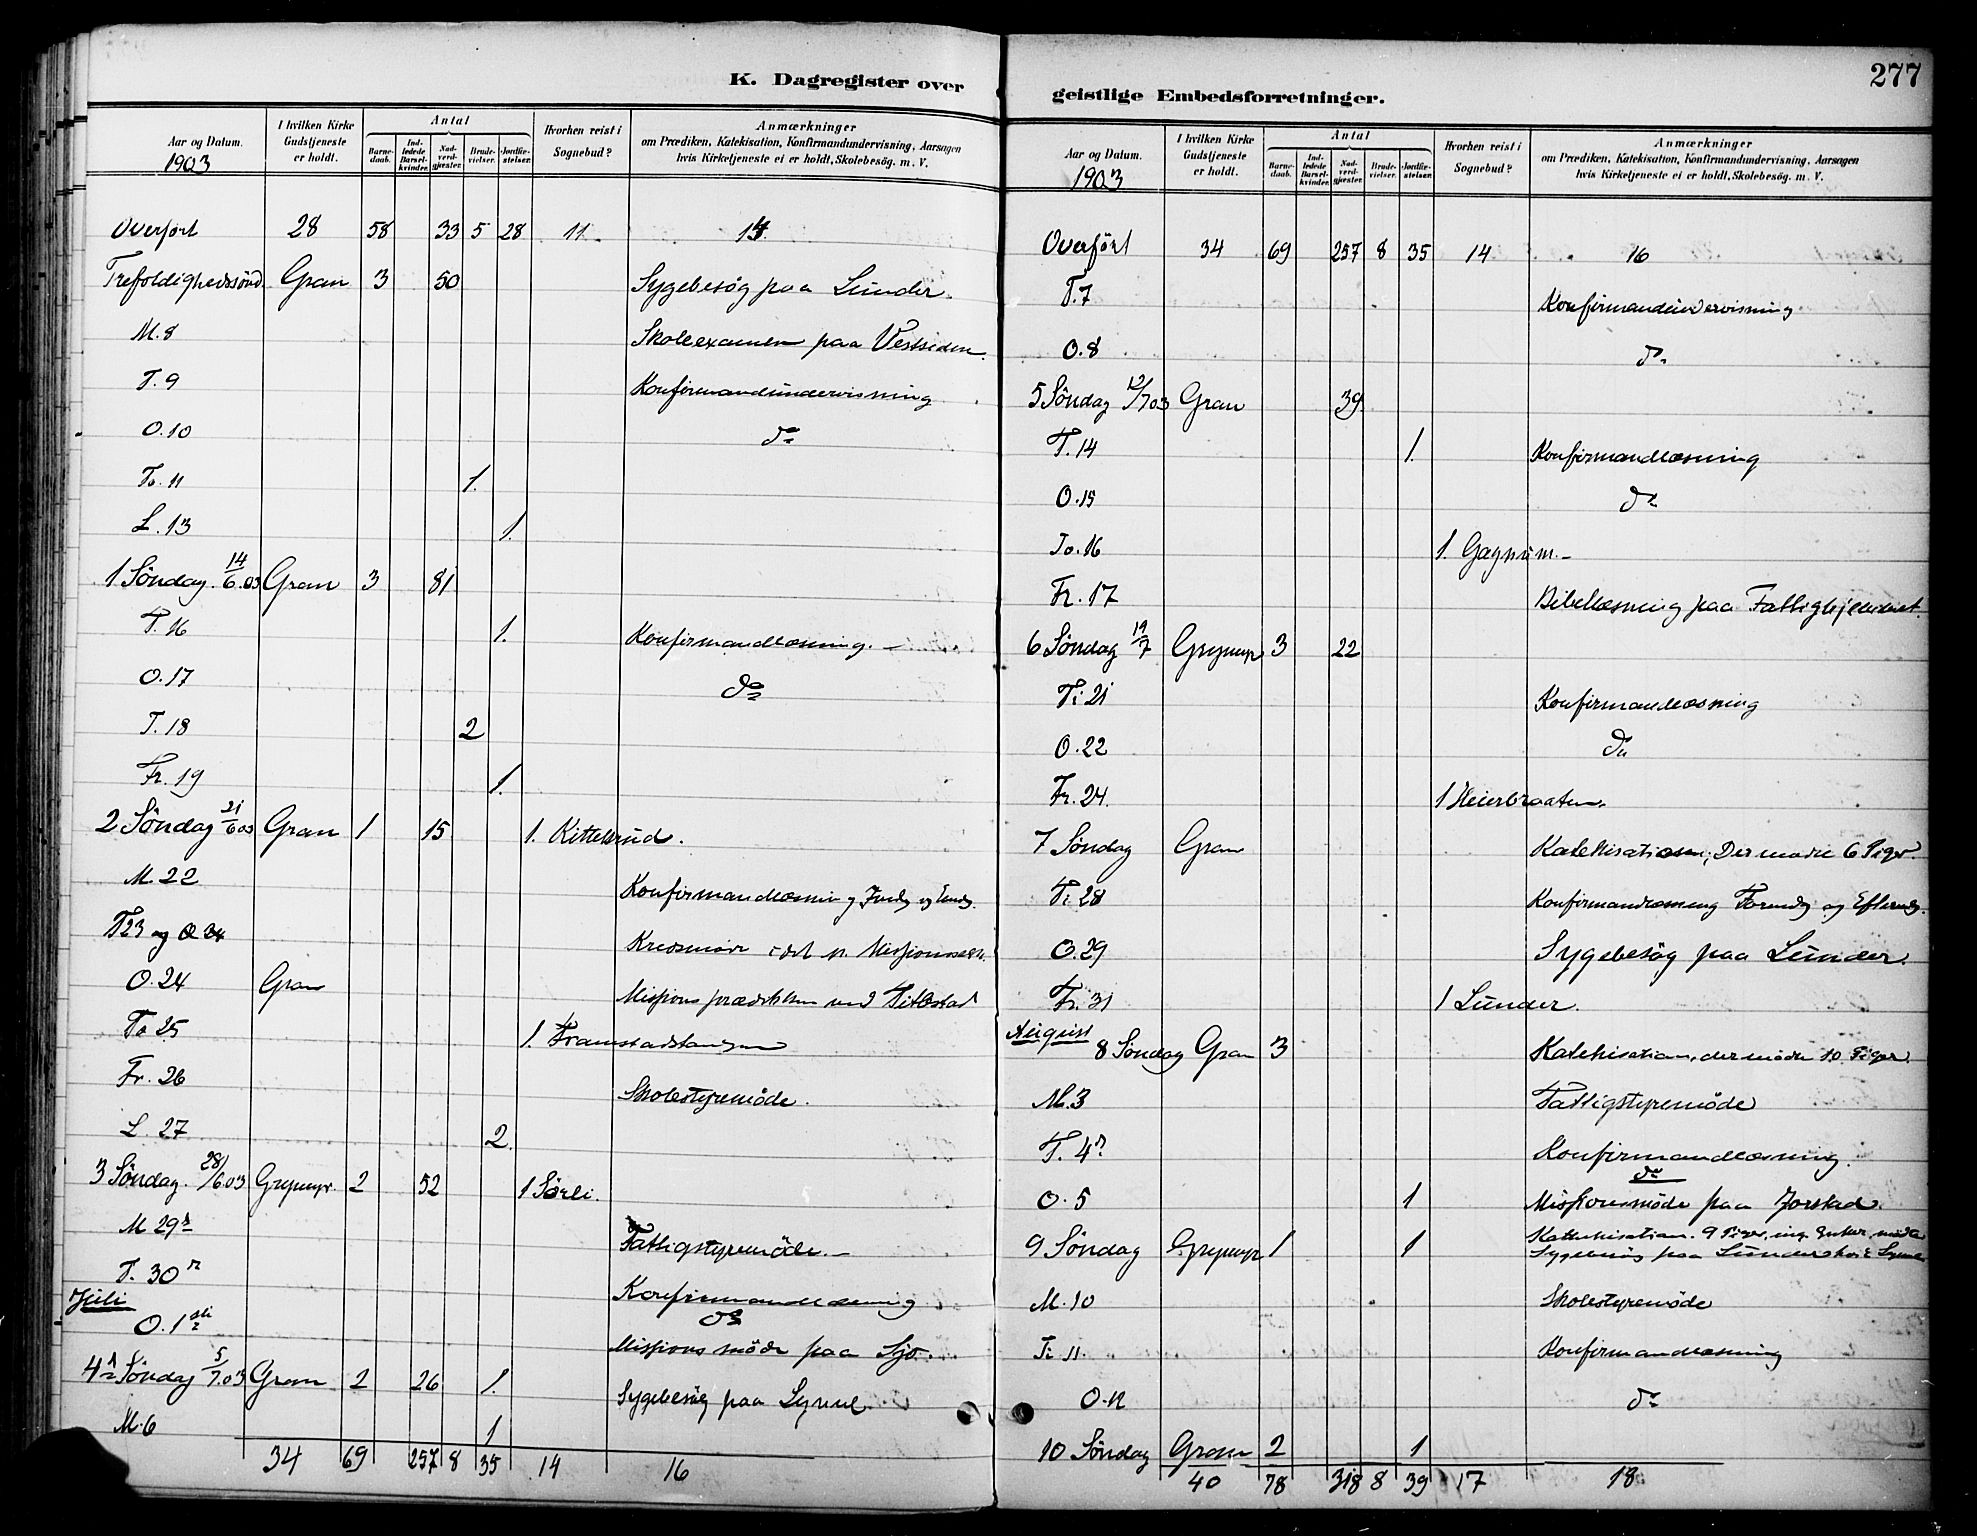 K. Dagregister over
Antal
I hvilken Kirke Gudstjeneste er holdt.
Aar og Datum.
1903
Barne- daab.
Ind- ledede Barsel- kvinder.
Nad- verd- gjæster.
Brude- vielser.
Jordfæ- stelser.
Hvorhen reist i Sognebud?
Anmærkninger
om Prædiken, Katekisation, Konfirmandundervisning, Aarsagen
hvis Kirketjeneste ei er holdt, Skolebesög. m. V.
Overført 28 58 33 5 28 11.
Trefoldighedssönd. Gran 3 50 Sygebesög paa Lunder.
M. 8 Skoleexamen paa Vestsiden.
T. 9 Konfirmandundervisning
O. 10 do
To. 11 1.
L. 13 1.
1 Söndag. 14/6.03 Gran 3 81
T. 16 1. Konfirmandlæsning. –
O. 17 do
T. 18 2
Fr. 19 1.
2 Söndag 21/6 03 Gran 1 15 1. Kittelsrud.
M. 22 Konfirmandlæsning
T 23 og O 24
O. 24 Gran
To 25 1. Framstadtangen
Fr. 26 Skolestyremöde.
L. 27 2.
3 Söndag. 28/6.03 Grymyr. 2 52 1 Sörli.
M 29de Fattigstyremöde. –
T. 30te Konfirmandlæsning
Juli
O. 1ste do
Missionsmöde paa Sjo.
4de Söndag 5/7.03 Gran 2 26 1. Sygebesög paa
M. 6 1
34 69 257 8 35 14 16
277
geistlige Embedsforretninger.
Antal
I hvilken Kirke Gudstjeneste er holdt.
Aar og Datum.
1903
Barne- daab.
Ind- ledede Barsel- kvinder.
Nad- verd- gjæster.
Brude- vielser.
Jordfæ- stelser.
Hvorhen reist i Sognebud?
Anmærkninger
om Prædiken, Katekisation, Konfirmandundervisning, Aarsagen
hvis Kirketjeneste ei er holdt, Skolebesög. m. V.
Overfört 34 69 257 8 35 14 16
T. 7 Konfirmandundervisning
O. 8 do
5 Söndag 12/7 03 Gran 39
T. 14 1. Konfirmandlæsning
O. 15 do
To. 16 1. Gagnum. –
Fr. 17 Bibellæsning paa Fattighjemmet.
6 Söndag 19/7 Grymyr 3 22
Ti 21 Konfirmandlæsning
O. 22 do
Fr. 24. 1 Heierbraaten.
7 Söndag Gran Katekisation, Der mødte 6 Piger.
Ti 28 Konfirmandlæsning Formdg og Eftermdg.
O. 29 Sygebesög paa Lunder.
Fr. 31 1 Lunder.
August
8 Söndag Gran 3 Katekisation, der mödte 10 Piger.
M. 3 Fattigstyremöde
T. 4de Konfirmandlæsning.
do
O. 5 1 Missionsmöde paa Jorstad.
9 Söndag Grymyr 1 1 Katekisation. 9 Piger, ing. Gutter mödte
Sygebesög paa Lunder
M. 10 Skolestyremöde
Ti 11. Konfirmandlæsning
O. 12 do
10 Söndag Gran 2 1
40 78 318 8 39 17 18